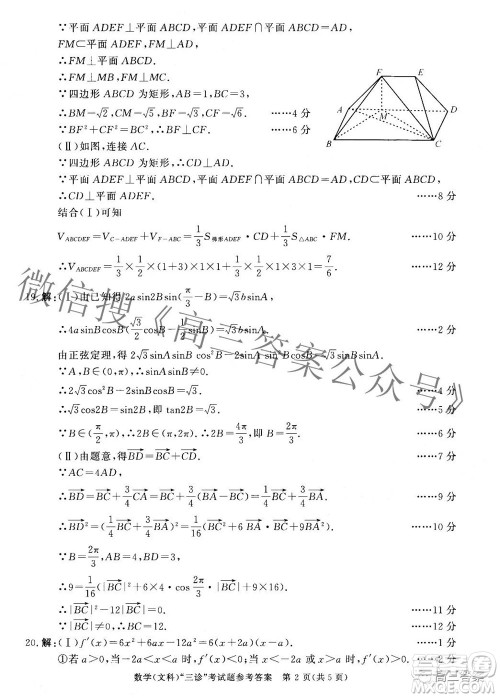 ∵平面ADEF⊥平面ABCD,平面ADEF∩平面ABCD=AD,
FM⊂平面ADEF,FM⊥AD,
∴FM⊥平面ABCD.
∴FM⊥MB,FM⊥MC.
∵四边形ABCD为矩形,AB=1,BC=3,
∴BM=√2,CM=√5,BF=√3,CF=√6. ……4分
∵BF²+CF²=BC²,∴BF⊥CF. ……6分
(Ⅱ)如图,连接AC.
∵四边形ABCD为矩形,∴CD⊥AD.
∵平面ADEF⊥平面ABCD,平面ADEF∩平面ABCD=AD,CD⊂平面ABCD,
∴CD⊥平面ADEF. ……8分
结合(Ⅰ)可知
V_ABCDEF=V_C-ADEF+V_F-ABC=1/3 S_梯形ADEF·CD+1/3 S_△ABC·FM. ……10分
∴V_ABCDEF=1/3×1/2×(1+3)×1×1+1/3×1/2×1×3×1=7/6. ……12分
19.解:(Ⅰ)由已知得2a sin2B sin(π/2-B)=√3b sinA,
∴4a sinB cosB(√3/2 cosB-1/2 sinB)=√3b sinA. ……2分
由正弦定理,得2√3 sinA sinB cos²B-2sinA sin²B cosB=√3 sinA sinB.
∵A,B∈(0,π),∴sinA≠0,sinB≠0.
∴2√3cos²B-2sinBcosB=√3. ……4分
∴√3cos2B=sin2B,即tan2B=√3. ……5分
∵B∈(π/2,π),∴2B∈(π,2π).∴2B=4π/3,即B=2π/3. ……6分
(Ⅱ)由题意,得BD=BC+CD. ……7分
∵AC=4AD,
∴BD=BC+3/4 CA=BC+3/4(BA-BC)=1/4 BC+3/4 BA. ……9分
∴BD²=(1/4 BC+3/4 BA)²=1/16(BC²+6BC·BA+9BA²). ……10分
∵B=2π/3,
∴9=1/16(|BC|²+6×4·cos2π/3·|BC|+9×4²).
∴|BC|²-12|BC|=0. ……11分
∵|BC|≠0,∴|BC|=12. ……12分
20.解:(Ⅰ)f′(x)=6x²+6ax-12a²=6(x+2a)(x-a). ……1分
①若a>0,当-2a<x<a时,f′(x)<0;当x<-2a或x>a时,f′(x)>0.
数学(文科)“三诊”考试题参考答案 第2页(共5页)
F
E
A
D
M
B
C
微信搜《高三答案公众号》
高三答案